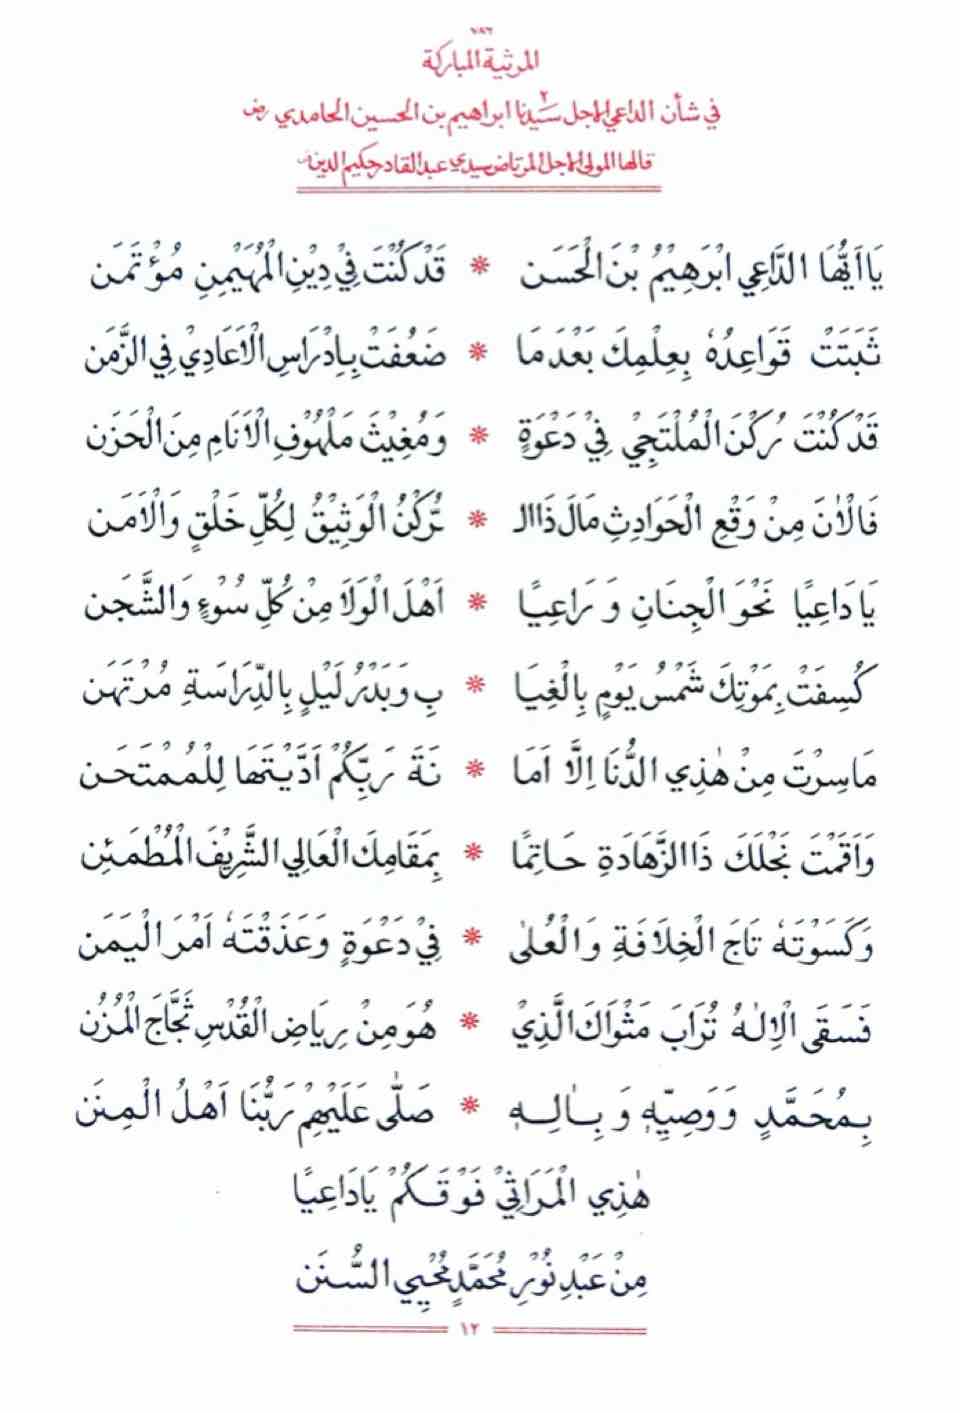 ٧٨٦
المرثية المباركة
في شأن الداعي الاجل سيدنا ٢ ابراهيم بن الحسين الحامدي رض
قالها المولى الاجل المرتاض سيدي عبد القادر حكيم الدين
يَا اَيُّهَا الدَّاعِي ابْرَهِيْمُ بْنَ الْحَسَن * قَدْ كُنْتَ فِيْ دِيْنِ الْمُهَيْمِنِ مُؤْتَمَن
ثَبَتَتْ قَوَاعِدُهٗ بِعِلْمِكَ بَعْدَ مَا * ضَعُفَتْ بِاِدْرَاسِ الْاَعَادِيْ فِي الزَّمَن
قَدْ كُنْتَ رُكْنَ الْمُلْتَجِيْ فِيْ دَعْوَةٍ * وَمُغِيْثَ مَلْهُوْفِ الْاَنَامِ مِنَ الْحَزَن
فَالْاٰنَ مِنْ وَقْعِ الْحَوَادِثِ مَالَ ذَا الـ * رُّكْنُ الْوَثِيْقُ لِكُلِّ خَلْقٍ وَالْاَمَن
يَا دَاعِيًا نَحْوَ الْجِنَانِ وَ رَاعِيًا * اَهْلَ الْوَلَا مِنْ كُلِّ سُوْءٍ وَالشَّجَن
كُسِفَتْ بِمَوْتِكَ شَمْسُ يَوْمٍ بِالْغِيَا * بِ وَبَدْرُ لَيْلٍ بِالدِّرَاسَةِ مُرْتَهَن
مَا سِرْتَ مِنْ هٰذِي الدُّنَا اِلَّا اَمَا * نَةَ رَبِّكُمْ اَدَّيْتَهَا لِلْمُمْتَحَن
وَاَقَمْتَ نَجْلَكَ ذَا الزَّهَادَةِ حَاتِمًا * بِمَقَامِكَ الْعَالِي الشَّرِيْفَ الْمُطْمَئِن
وَكَسَوْتَهٗ تَاجَ الْخِلَافَةِ وَالْعُلىٰ * فِيْ دَعْوَةٍ وَعَذَقْتَهٗ اَمْرَ الْيَمَن
فَسَقَى الْاِلٰهُ تُرَابَ مَثْوَاكَ الَّذِيْ * هُوَ مِنْ رِيَاضِ الْقُدْسِ ثَجَّاجَ الْمُزُن
بِمُحَمَّدٍ وَوَصِيِّهٖ وَ بِاٰلِهٖ * صَلّٰى عَلَيْهِمْ رَبُّنَا اَهْلُ الْمِنَن
هٰذِي الْمَرَاثِيْ فَوْقَكُمْ يَا دَاعِيًا
مِنْ عَبْدِ نُوْرِ مُحَمَّدٍ مُحْيِي السُّنَن
١٢